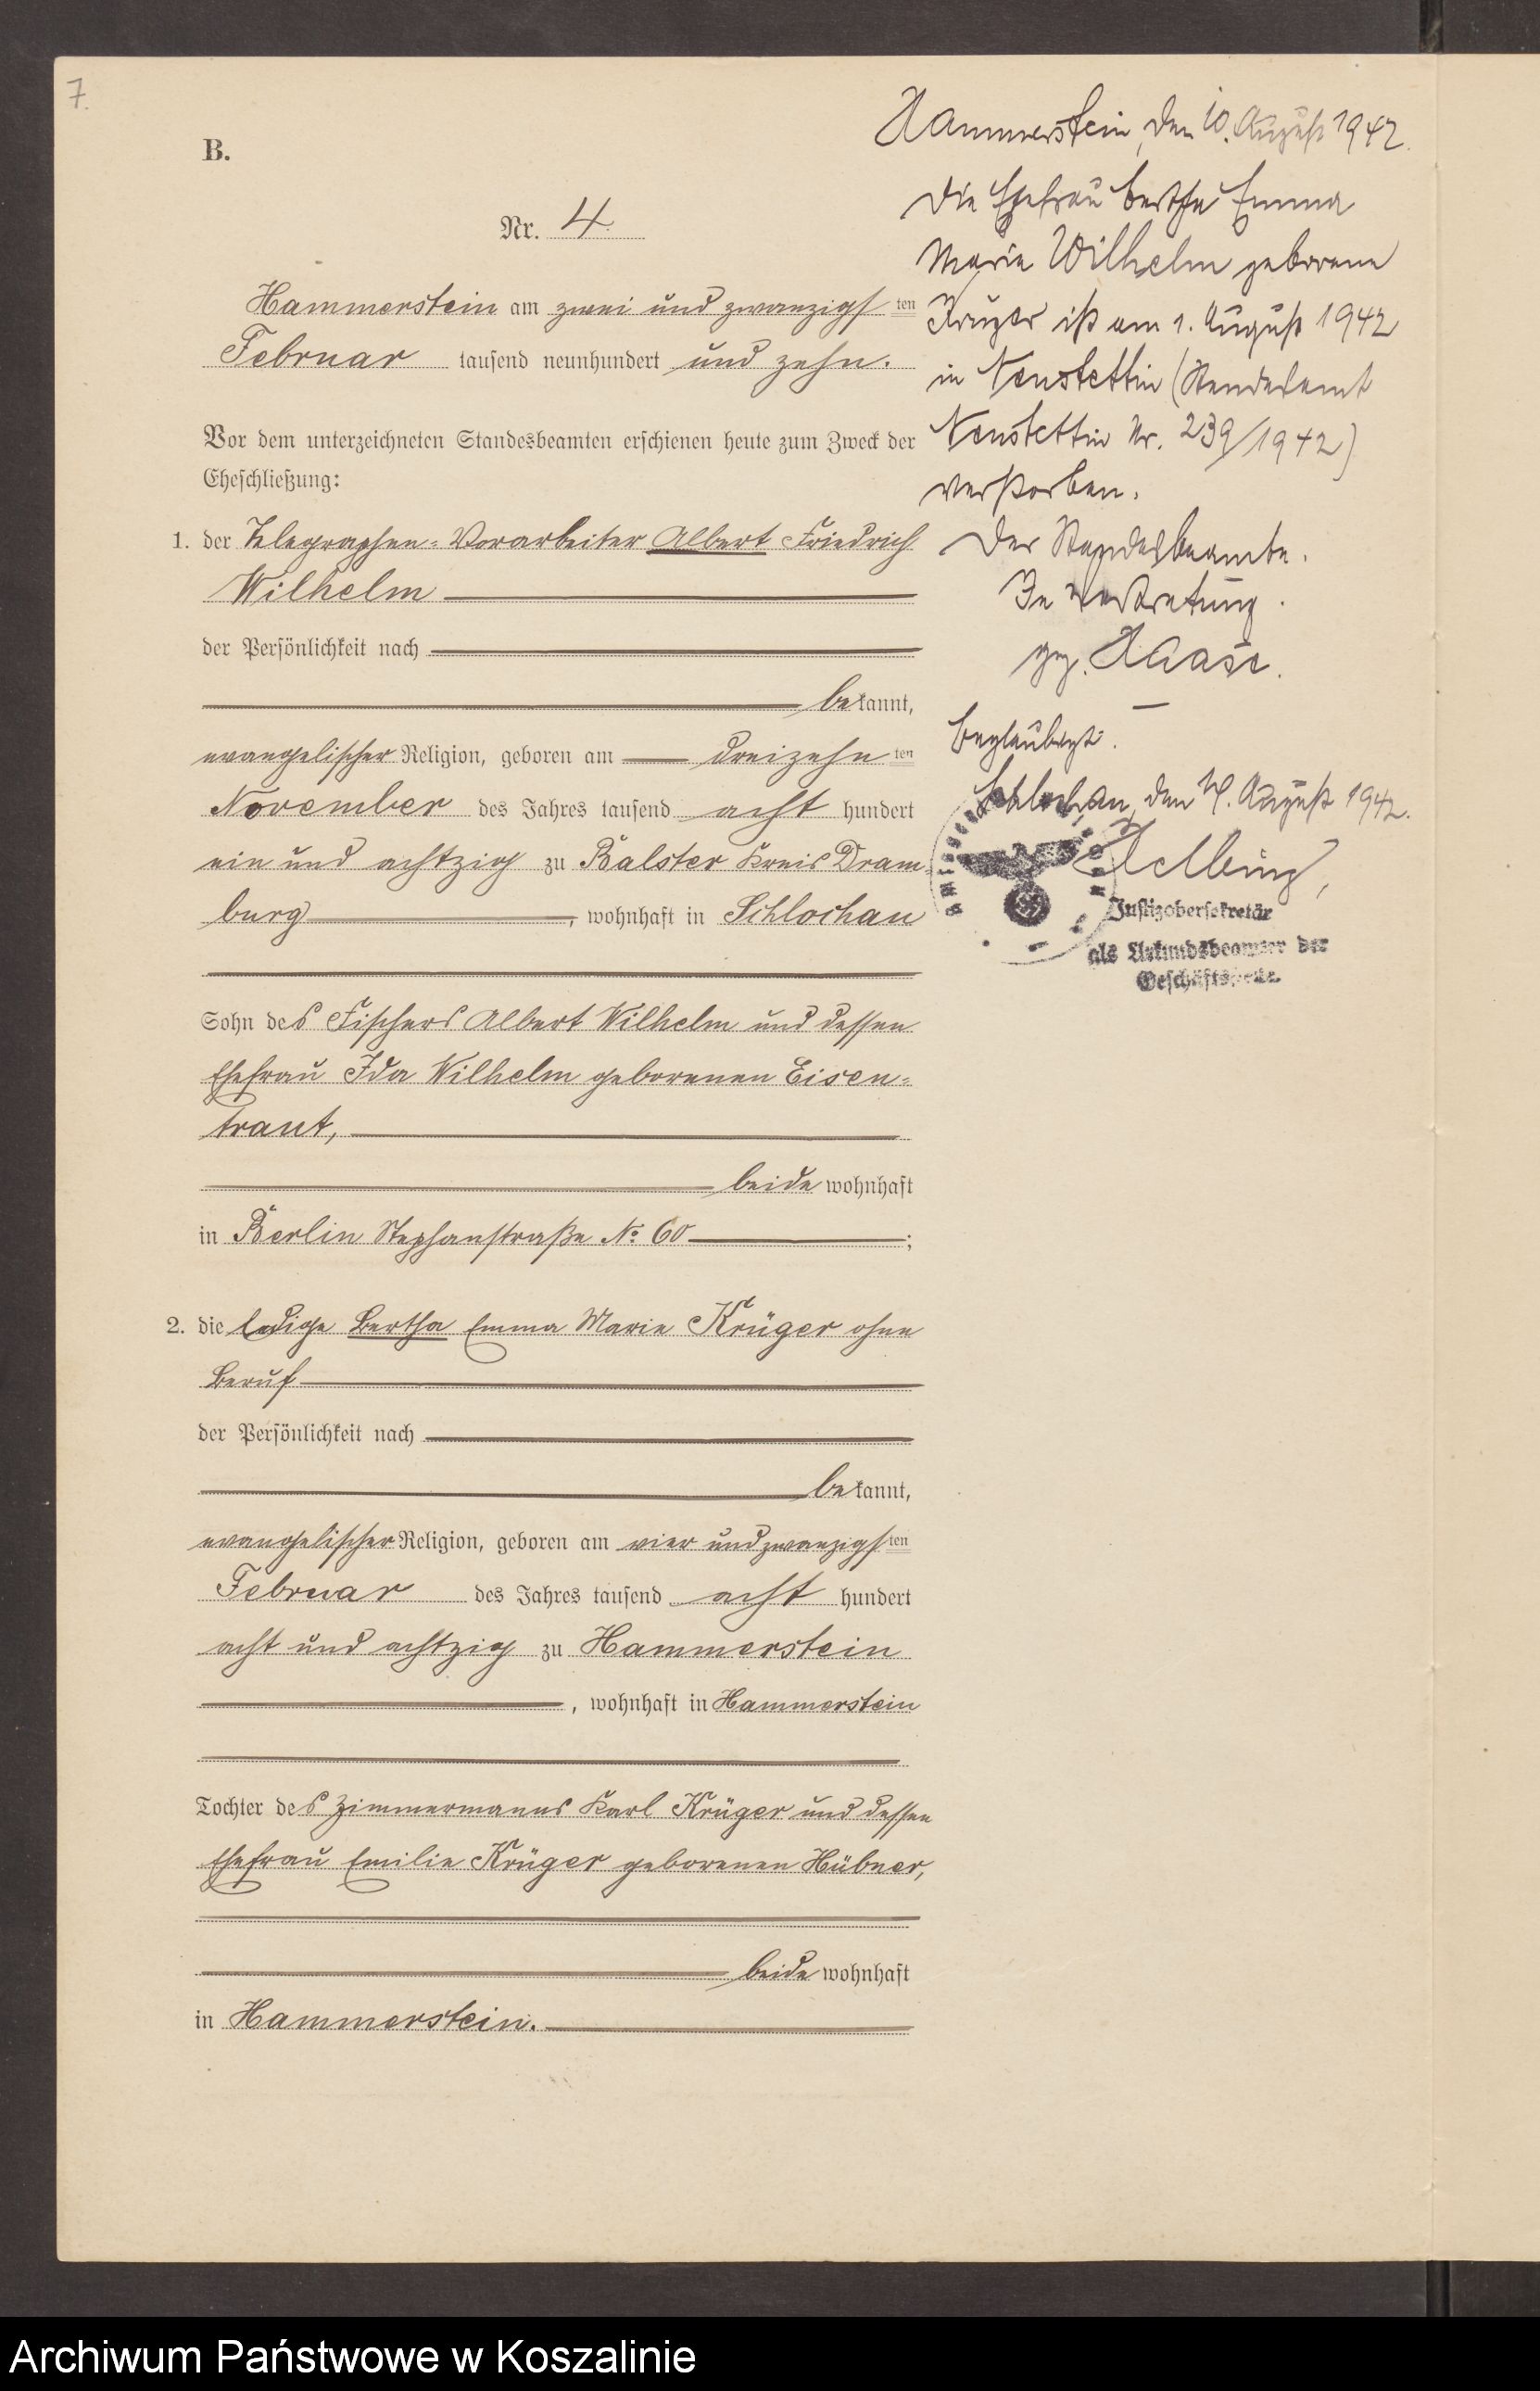 7.
B.
Nr. 4
Hammerstein am zwei und zwanzigsten
Februar tausend neunhundert und zehn.
Vor dem unterzeichneten Standesbeamten erschienen heute zum Zweck der
Eheschließung:
1. der Telegraphen-Vorarbeiter Albert Friedrich
Wilhelm
der Persönlichkeit nach
bekannt,
evangelischer Religion, geboren am dreizehnten
November des Jahres tausend acht hundert
ein und achtzig zu Balster Kreis Dram-
burg, wohnhaft in Schlochau
Sohn des Fischers Albert Wilhelm und dessen
Ehefrau Ida Wilhelm geborenen Eisen-
traut,
beide wohnhaft
in Berlin Stephanstraße No 60;
2. die ledige Bertha Emma Marie Krüger ohne
Beruf
der Persönlichkeit nach
bekannt,
evangelischer Religion, geboren am vier und zwanzigsten
Februar des Jahres tausend acht hundert
acht und achtzig zu Hammerstein
, wohnhaft in Hammerstein
Tochter des Zimmermanns Karl Krüger und dessen
Ehefrau Emilie Krüger geborenen Hübner,
beide wohnhaft
in Hammerstein.
Hammerstein, den 10. August 1942.
Die Ehefrau Bertha Emma
Marie Wilhelm geborene
Krüger ist am 1. August 1942
in Neustettin (Standesamt
Neustettin Nr. 239/1942)
verstorben.
Der Standesbeamte.
In Vertretung.
gez. Haase.
Beglaubigt.
Schlochau, den August 1942.
Justizobersekretär
als Urkundsbeamter der
Geschäftsstelle.
Archiwum Państwowe w Koszalinie